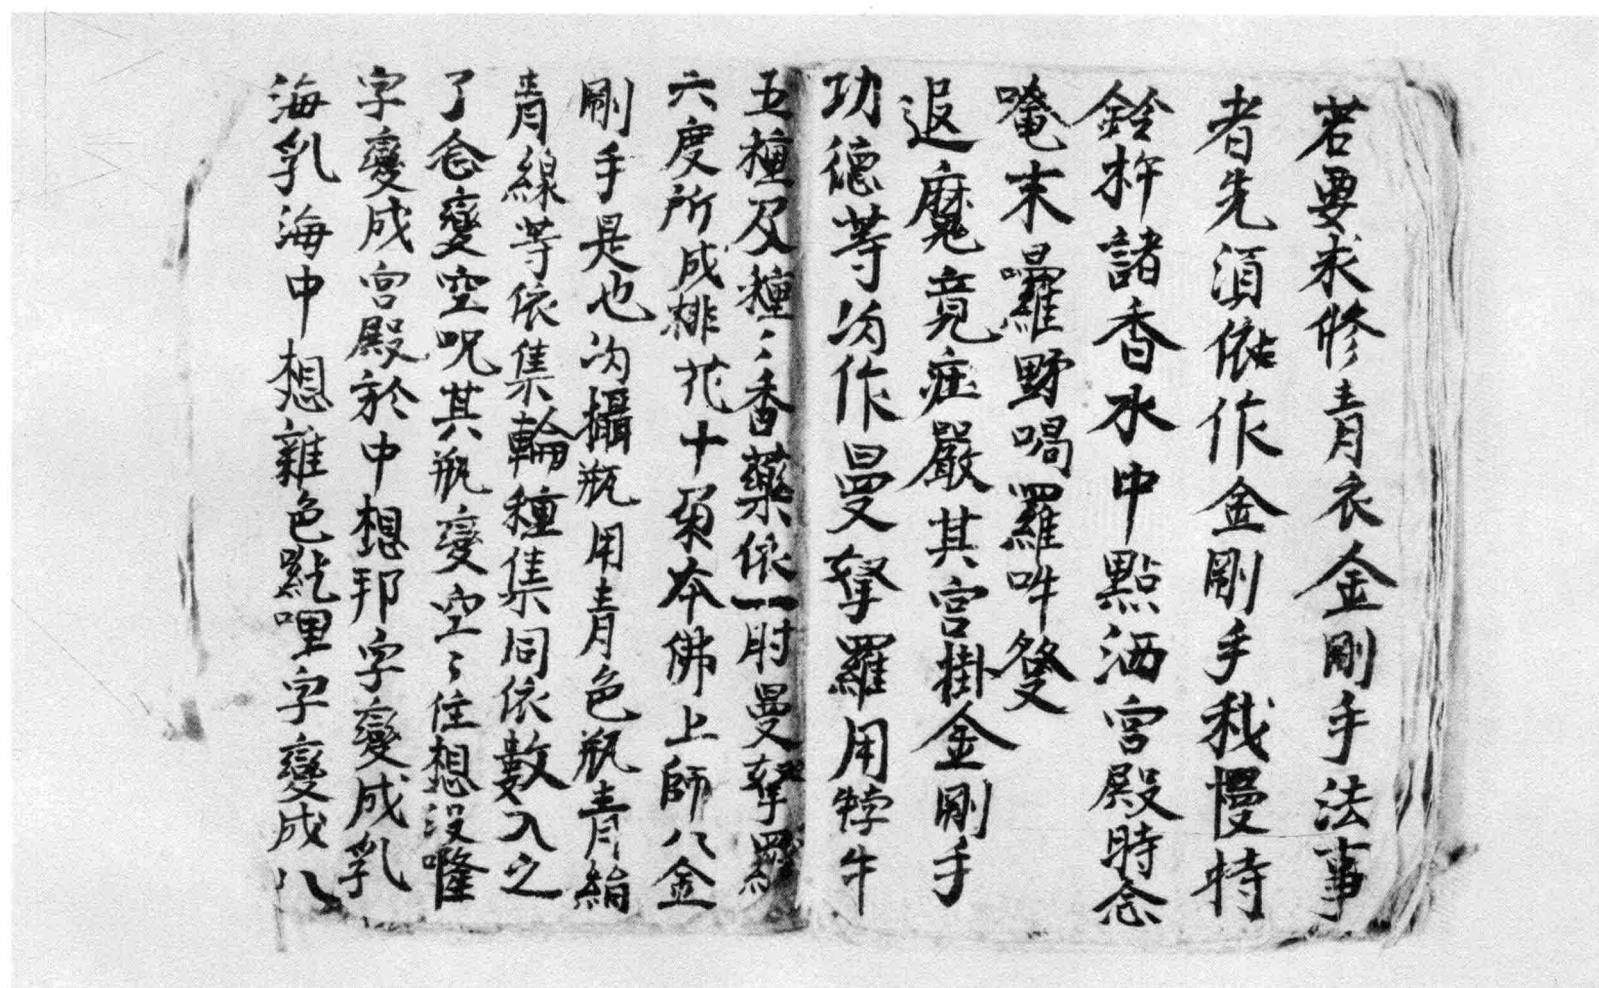 若要求修青衣金剛手法事
者先湏依作金剛手我慢持
鈴杵諸香水中點洒宮殿時念
唵末囉野喝羅吽發
退魔竟庄嚴其宮掛金剛手
功德等次作曼拏羅用犉牛
五種及種〻香藥依一肘曼拏羅
六度所成排花十
本佛上師八金
剛手是也次攝瓶用青色瓶青絹
青線等依集輪種集同依數入之
了念變空呪其瓶變空〻住想没隆
字變成宮殿於中想邦字變成乳
海乳海中想雜色𠷑哩字變成八